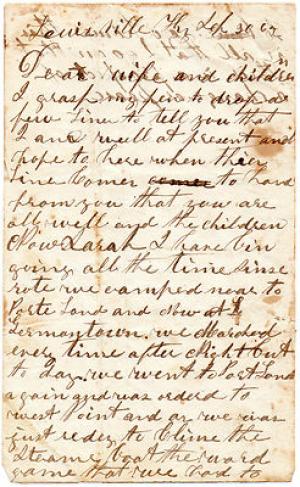 Louisville Ky Sep 30 62
Dear wife and children
I grasp my pen to drop a
few line to tell you that
I am well at present and
hope to here when these
line Comes to hand
from you that you are
all well and the children
Now Sarah I have bin
going all the time sinse
rote we camped near to
Porte Land and Now at
Germantown. we Marched
every time after Night but
to day. we went to Port Land
again and was orderd to
west Point and as we was
just redey to Clime the
Steame boat the word
came that we had to